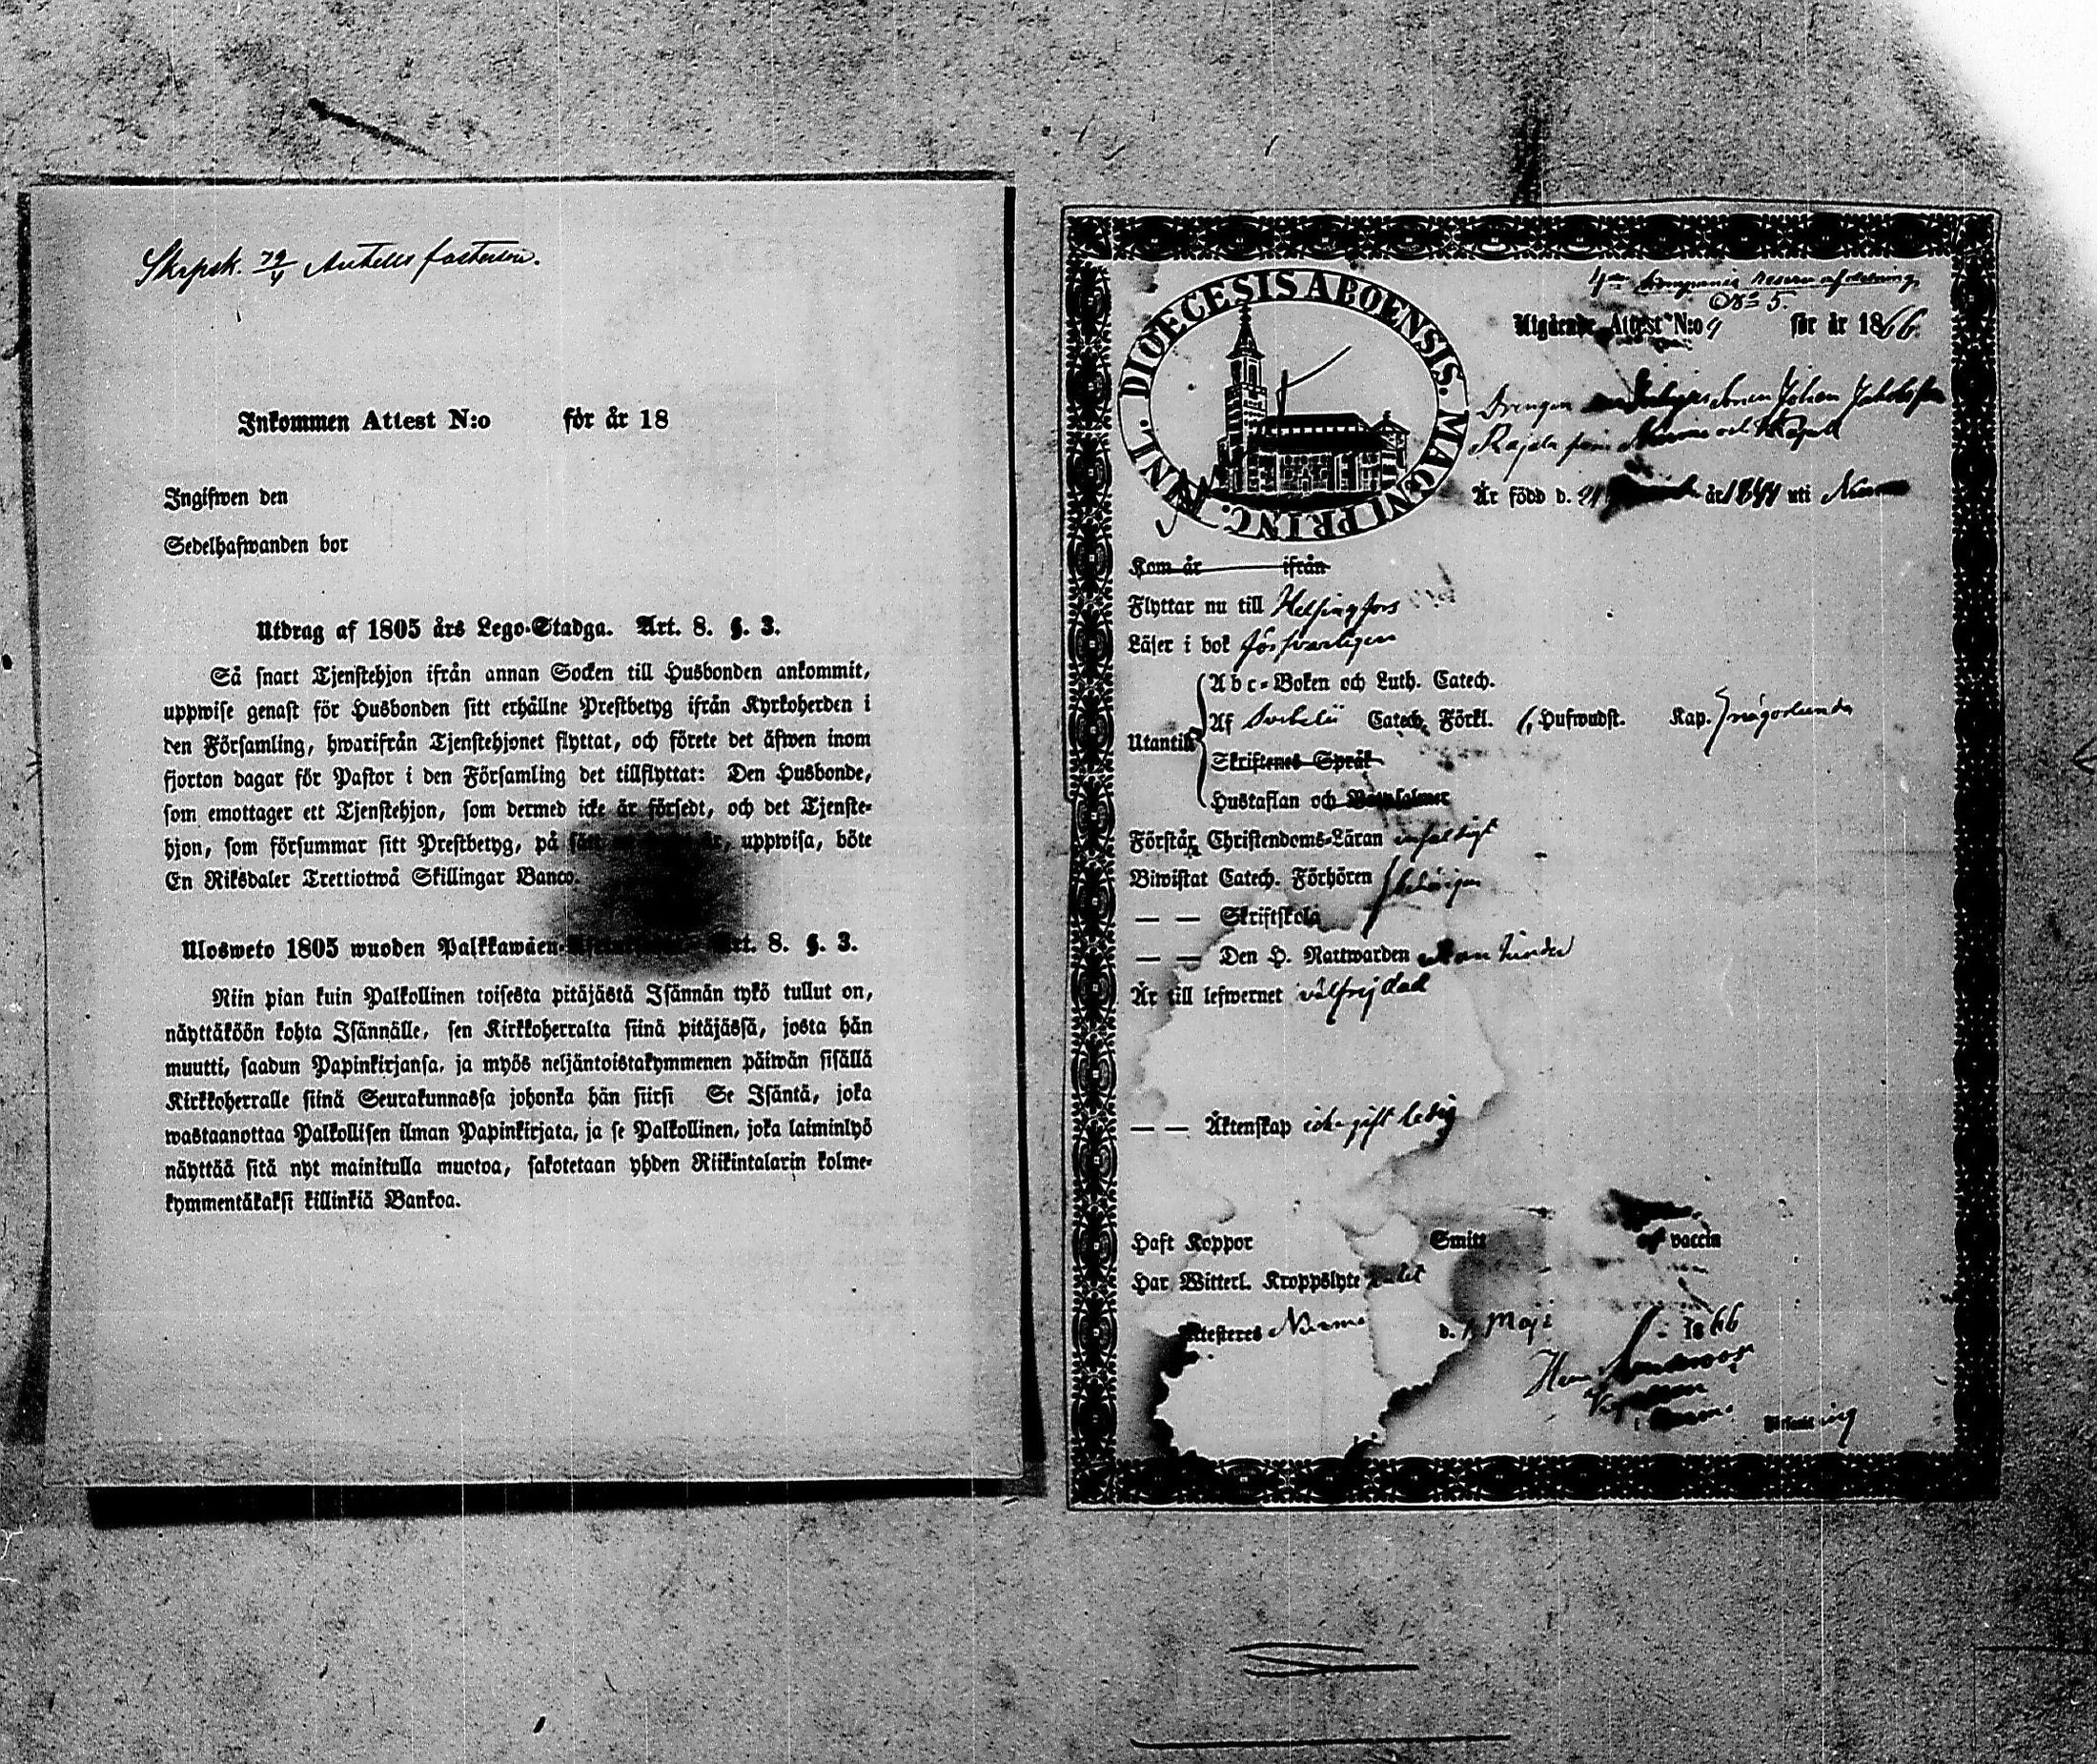 Skrpsk. 79/4
Inkommen Attest N:o för år 18
Ingifwen den
Sedelhafwanden bor
Utdrag af 1805 års Lego-Stadga. Art. 8. §. 3.
Så snart Tjenstehjon ifrån annan Socken till Husbonden ankommit,
uppwise genast för Husbonden sitt erhällne Prestbetyg ifrån Kyrkoherden i
den Församling, hwarifrån Tjenstehjonet flyttat, och förete det äfwen inom
fjorton dagar för Pastor i den Församling det tillflyttat: Den Husbonde,
som emottager ett Tjenstehjon, som dermed icke är försedt, och det Tjenste-
hjon, som försummar sitt Prestbetyg, på uppwisa, böte
En Riksdaler Trettiotwå Skillingar Banco.
Ulosweto 1805 wuoden Palkkawäen- Art. 8. §. 3.
Niin pian kuin Palkollinen toisesta pitäjästä Isännän tykö tullut on,
näyttäköön kohta Isännälle, sen Kirkkoherralta siinä pitäjässä, josta hän
muutti, saadun Papinkirjansa, ja myös neljäntoistakymmenen päiwän sisällä
Kirkkoherralle siinä Seurakunnassa johonka hän siirsi Se Isäntä, joka
wastaanottaa Palkollisen ilman Papinkirjata, ja se Palkollinen, joka laiminlyö
näyttää sitä nyt mainitulla muotoa, sakotetaan yhden Riikintalarin kolme-
kymmentäkaksi killinkiä Bankoa.
DIOECESIS ABOENSIS. MAGNI PRINC. FINL.
4de Kompanie Reserv afdelning
No 5.
Utgående Attest N:o 9 för år 1866.
Drengen Johan Jakobsson
Rajala från Nurmo och Kapell
Är född d. år 1844 uti Nurmo
Kom år ifrån
Flyttar nu till Helsingfors
Läser i bok försvarligen
Abc-Boken och Luth. Catech.
Utantill Af Svebelii Catech. Förkl. Hufwudst. Kap.
Skriftenes Språk
Hustaflan och Botpsalmer
Förstår Christendoms-Läran enfaldigt
Biwistat Catech. Förhören
— — Skriftskola
— — Den H. Nattwarden
Är till lefwernet välfrejdad
— — Äktenskap icke gift ledig
Haft Koppor Smitt af vaccin
Har Witterl. Kroppslyte
Attesteres Nurmo d. Maji 1866